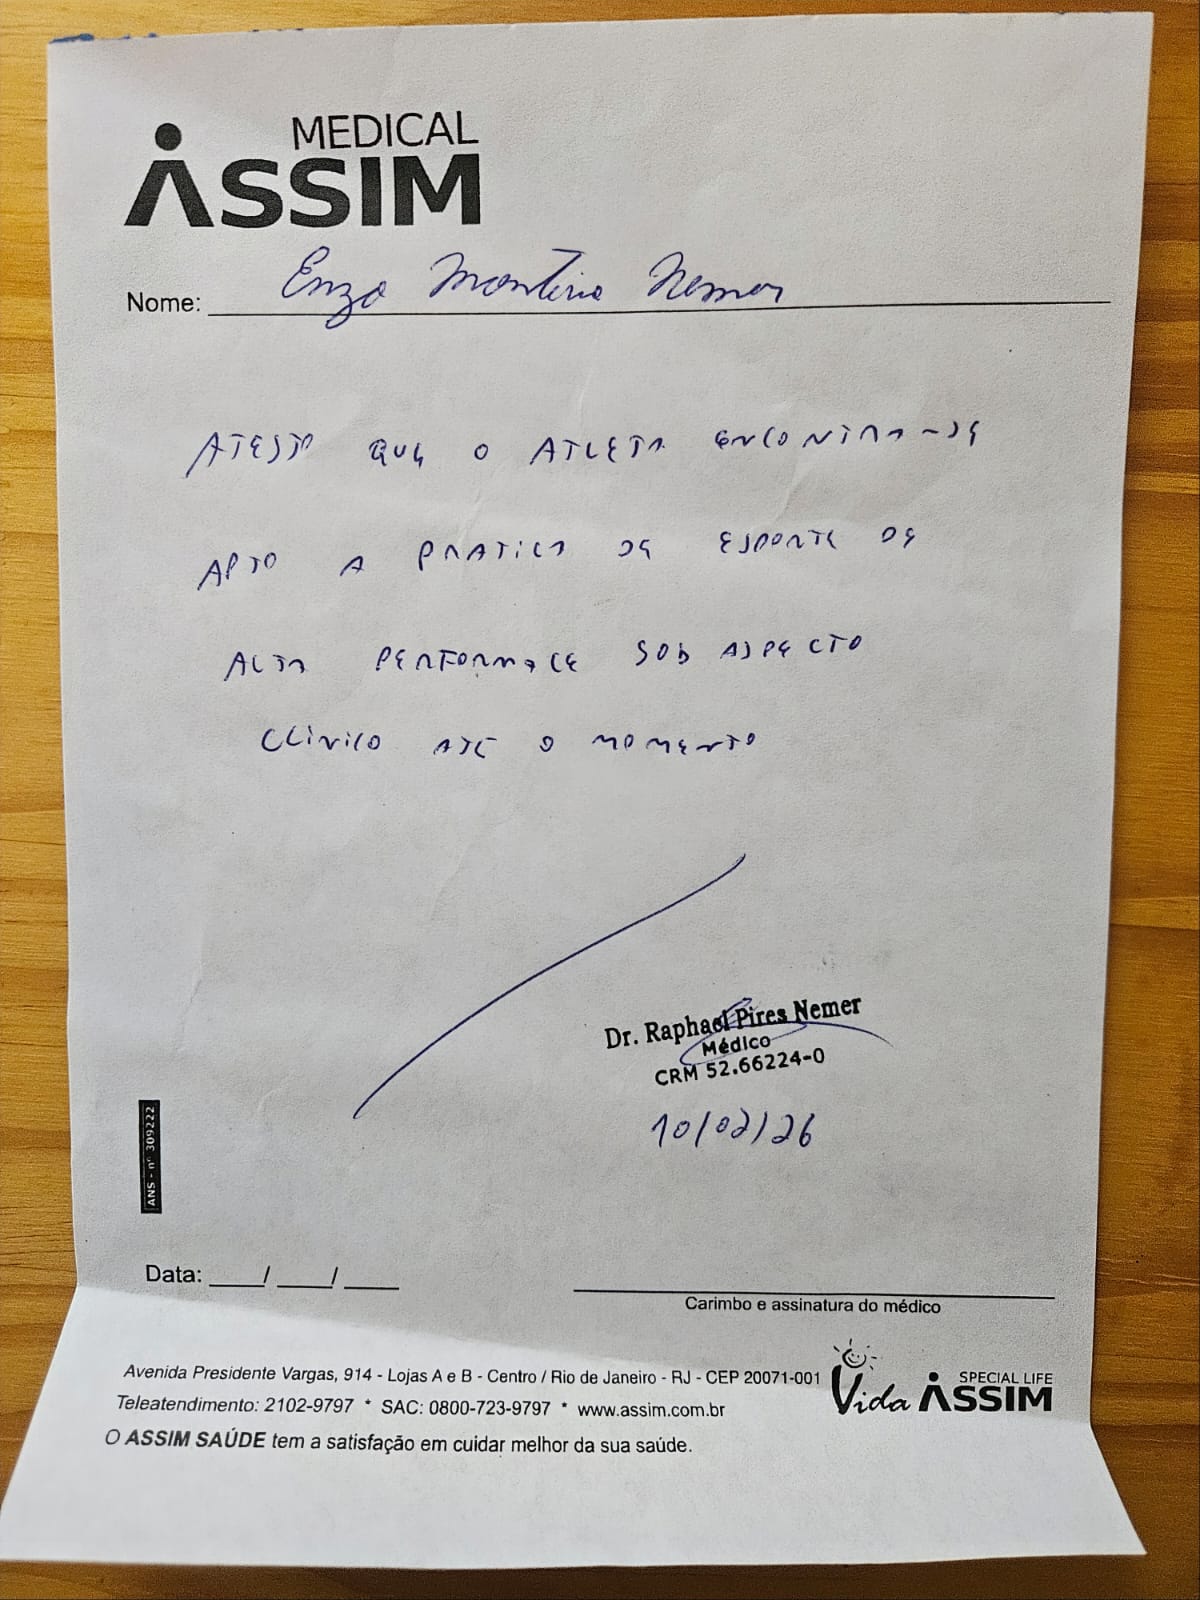 MEDICAL
ASSIM
Nome: Enzo Monteiro Nemer
ATESTO QUE O ATLETA ENCONTRA-SE
APTO A PRATICA DE ESPORTE DE
ALTA PERFORMACE SOB ASPECTO
CLÍNICO ATÉ O MOMENTO
Dr. Raphael Pires Nemer
Médico
CRM 52.66224-0
10/02/26
ANS - nº 309222
Data: ____/ ____/ ____
Carimbo e assinatura do médico
Avenida Presidente Vargas, 914 - Lojas A e B - Centro / Rio de Janeiro - RJ - CEP 20071-001
Teleatendimento: 2102-9797 * SAC: 0800-723-9797 * www.assim.com.br
O ASSIM SAÚDE tem a satisfação em cuidar melhor da sua saúde.
Vida
SPECIAL LIFE
ASSIM